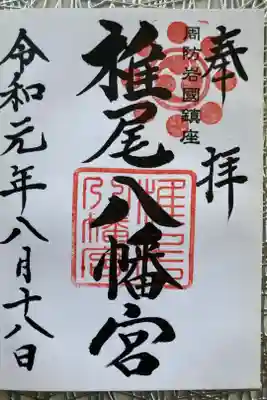 奉拝
周防岩國鎮座
椎尾八幡宮
椎尾八幡宮
令和元年八月十八日